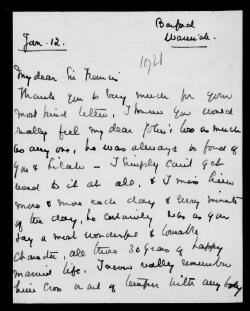 Barford
Warwick.
Jan. 12.
1921
My dear Sir Francis
Thank you so very much for your
most kind letter, I know you would
really feel my dear John's loss as much
as any one, he was always so fond of
you & Lilah — I simply can't get
used to it at all, & I miss him
more & more each day & every minute
of the day, he certainly was as you
say a most wonderful & lovable
character, all thro 30 years of happy
married life. I never really remember
him cross or out of temper with any body